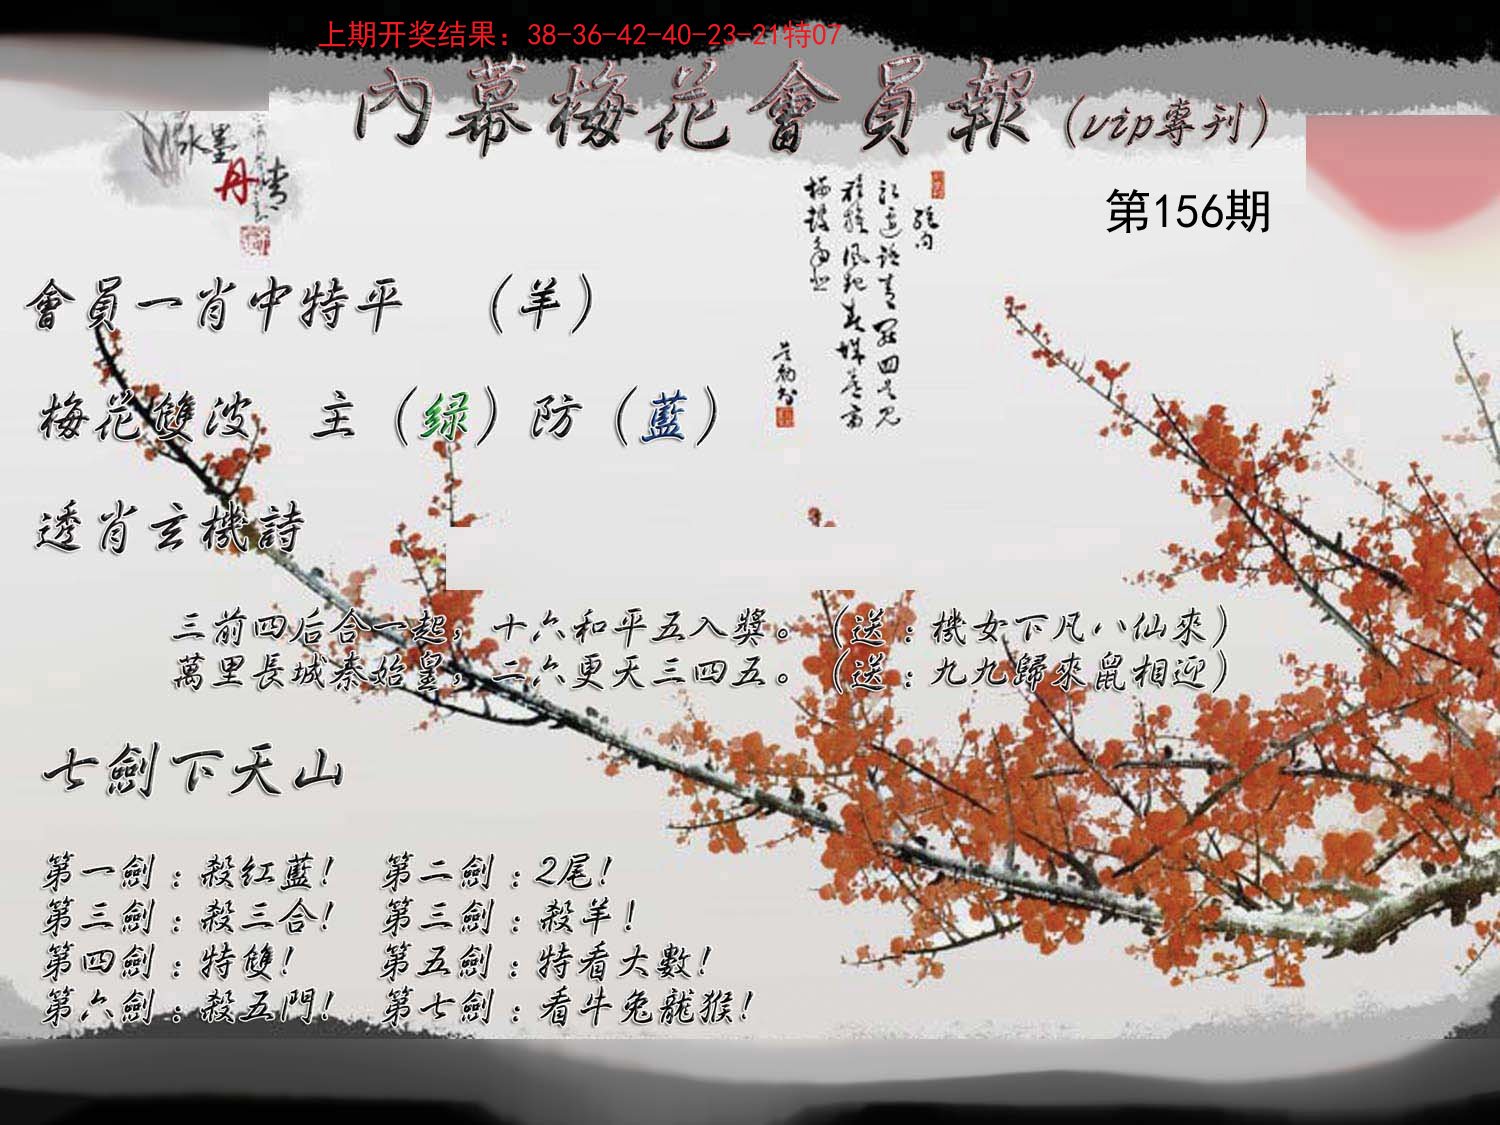 上期开奖结果：38-36-42-40-23-21特07
內幕梅花會員報（vip專刊）
第156期
水墨
丹青
會員一肖中特平　（羊）
梅花雙波　主（綠）防（藍）
透肖玄機詩
三前四后合一起，十六和平五入獎。（送：機女下凡八仙來）
萬里長城秦始皇，二六更天三四五。（送：九九歸來鼠相迎）
七劍下天山
第一劍：殺紅藍！　第二劍：2尾！
第三劍：殺三合！　第三劍：殺羊！
第四劍：特雙！　第五劍：特看大數！
第六劍：殺五門！　第七劍：看牛兔龍猴！